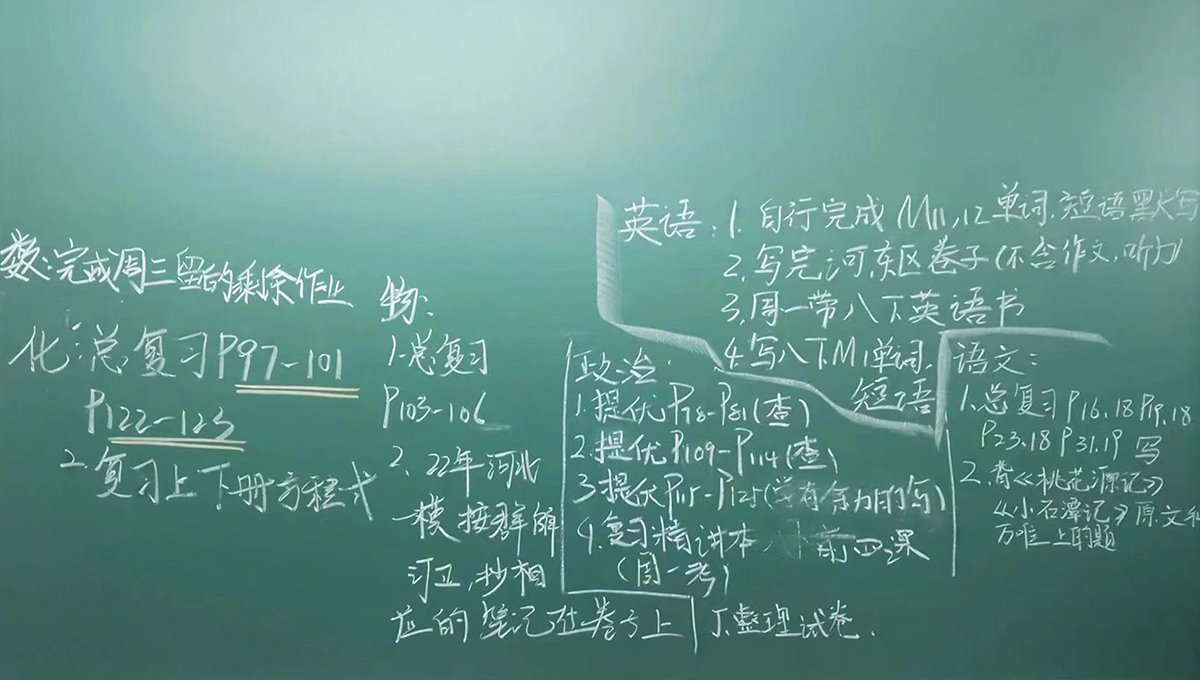 数:完成周三留的剩余作业
化:总复习P97-101
P122-123
2.复习上下册方程式
物:
1.总复习
P103-106
2.22年河北
一模 按群解
订正,抄相
应的笔记在卷子上
英语:1.自行完成M11,12单词,短语默写
2.写完河东区卷子(不含作文,听力)
3.周一带八下英语书
4.写八下M1单词,
短语
政治:
1.提优P78-P81(查)
2.提优P109-P114(查)
3.提优P115-P125(学有余力的写)
4.复习精讲本 前四课
(周一考)
5.整理试卷.
语文:
1.总复习P16.18 P19.18
P23.18 P31.19 写
2.背《桃花源记》
《小石潭记》原文和
万唯上的题